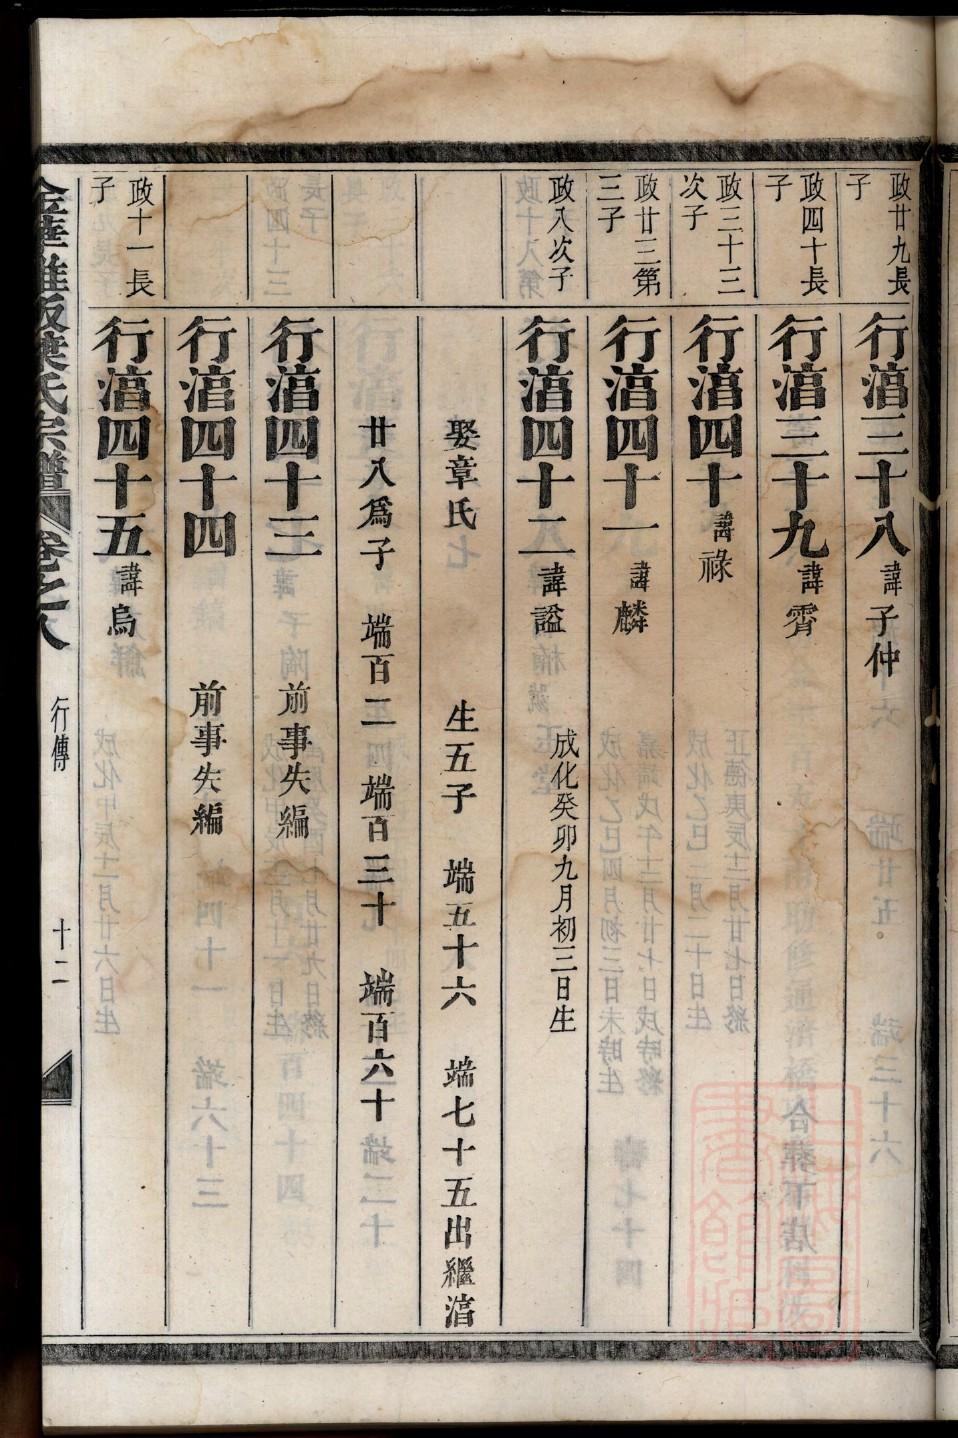 政廿九長子
行湻三十八 諱子仲
政四十長子
行湻三十九 諱霽
政三十三次子
行湻四十 諱祿
政廿三第三子
行湻四十一 諱麟
政八次子
行湻四十二 諱謚 成化癸卯九月初三日生
娶章氏七 生五子 端五十六 端七十五出繼湻
廿八爲子 端百二 端百三十 端百六十
行湻四十三 前事失編
行湻四十四 前事失編
政十一長子
行湻四十五 諱烏
葉氏宗譜 卷之八 行傳 十二